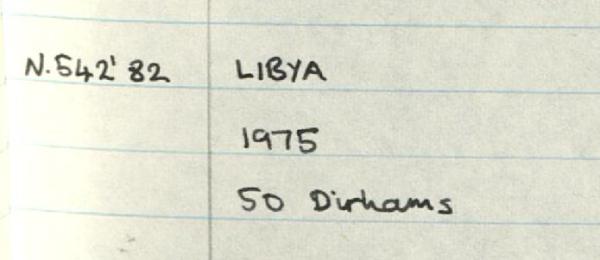 N.542'82 LIBYA
1975
50 Dirhams